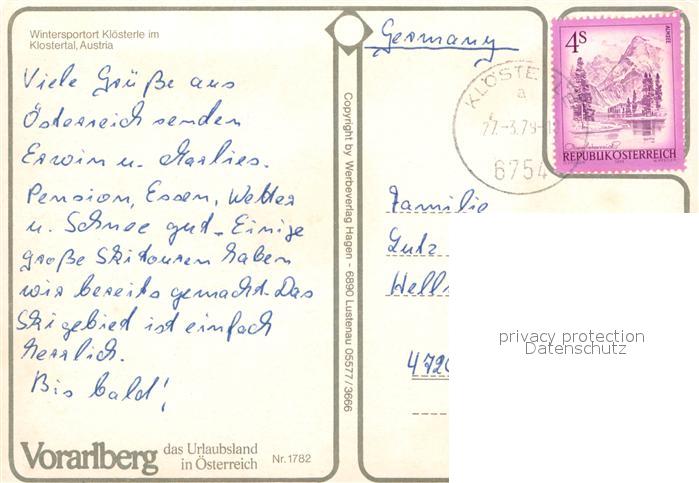 Wintersportort Klösterle im
Klostertal, Austria
Viele Grüße aus
Österreich senden
Erwin u. Marlies.
Pension, Essen, Wetter
u. Schnee gut. Einige
große Skitouren haben
wir bereits gemacht. Das
Skigebiet ist einfach
herrlich.
Bis bald!
Vorarlberg das Urlaubsland
in Österreich
Nr. 1782
Copyright by Werbeverlag Hagen - 6890 Lustenau 05577/3666
Germany
4S
ALMSEE
REPUBLIK ÖSTERREICH
KLÖSTE
a
27.-3.79-1
6754
Familie
Lutz
Hells
4720
privacy protection
Datenschutz